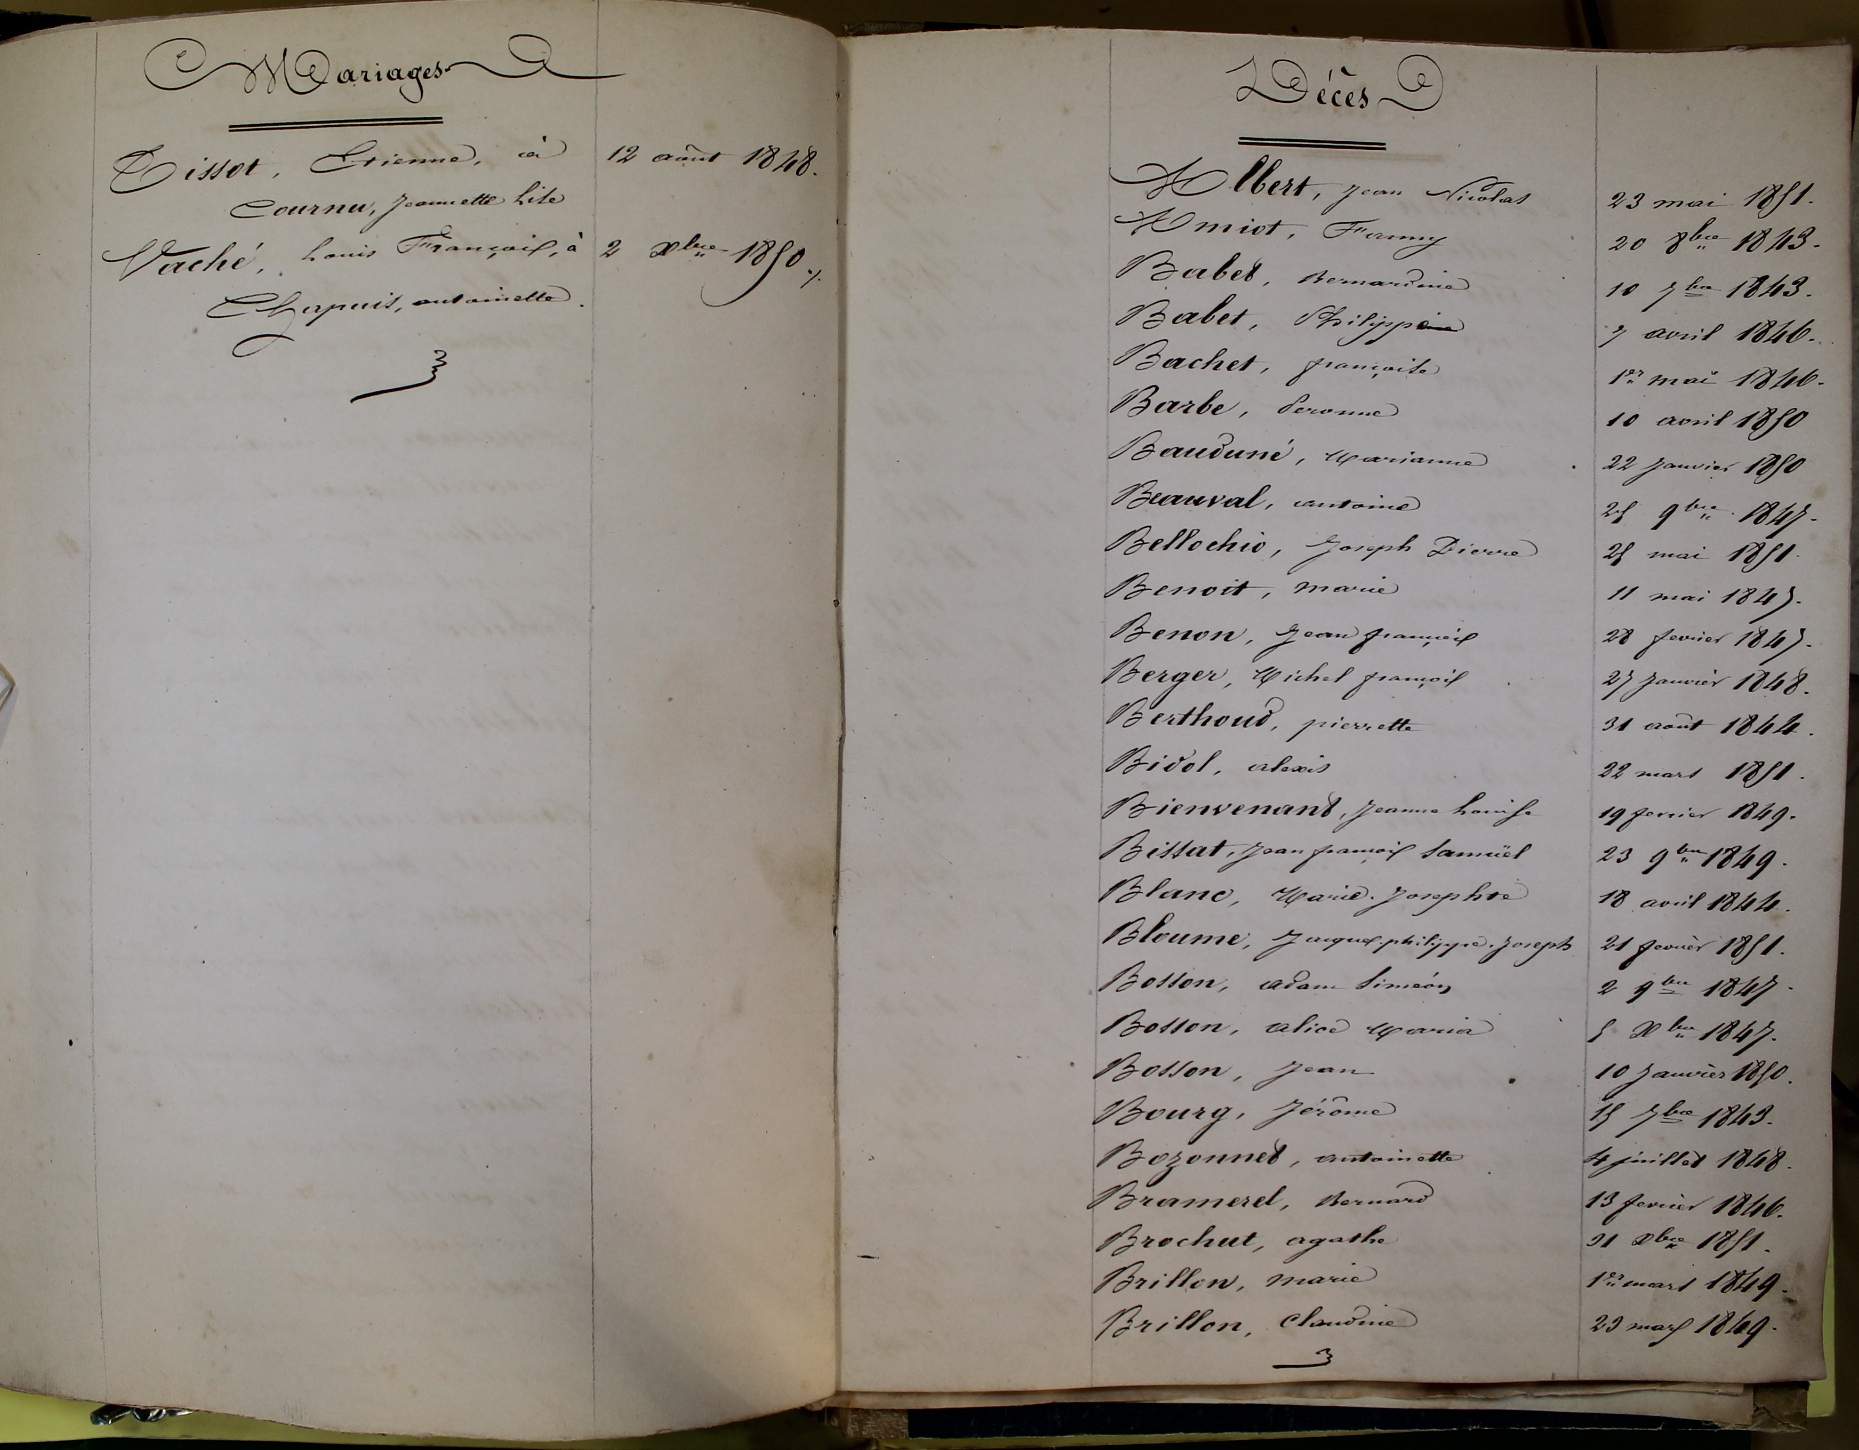 Mariages
Tissot, Etienne, à 12 août 1848.
Cournu, Jeannette Lise
Vaché, Louis François, à 2 Xbre 1850./.
Chapuis, antoinette.
Décès
Albert, Jean Nicolas 23 mai 1851.
Amiot, Fanny 20 8bre 1843.
Babet, Bernardine 10 7bre 1843.
Babet, Philippine 7 avril 1846.
Bachet, françoise 1er mai 1846.
Barbe, Peronne 10 avril 1850
Bauduné, Marianne 22 Janvier 1850
Beauval, antoine 25 9bre 1847.
Bellochio, Joseph Pierre 25 mai 1851.
Benoit, marie 11 mai 1847.
Benon, Jean françois 28 fevrier 1847.
Berger, Michel françois 27 Janvier 1848.
Berthoud, pierrette 31 août 1844.
Bidol, alexis 22 mars 1851.
Bienvenant, Jeanne Louise 19 fevrier 1849.
Bissat, Jean françois Samuël 23 9bre 1849.
Blanc, Marie. Josephte 18 avril 1844.
Bloume, Jacques. philippe. Joseph 21 fevrier 1851.
Bosson, adam Siméon 2 9bre 1847.
Bosson, alice Maria 5 Xbre 1847.
Bosson, Jean 10 Janvier 1850.
Bourg, Jérôme 15 7bre 1843.
Bozonnet, antoinette 4 juillet 1848.
Bramerel, Bernard 13 fevrier 1846.
Brochut, agathe 31 Xbre 1851.
Brillon, marie 1er mars 1849.
Brillon, Claudine 23 mars 1849.